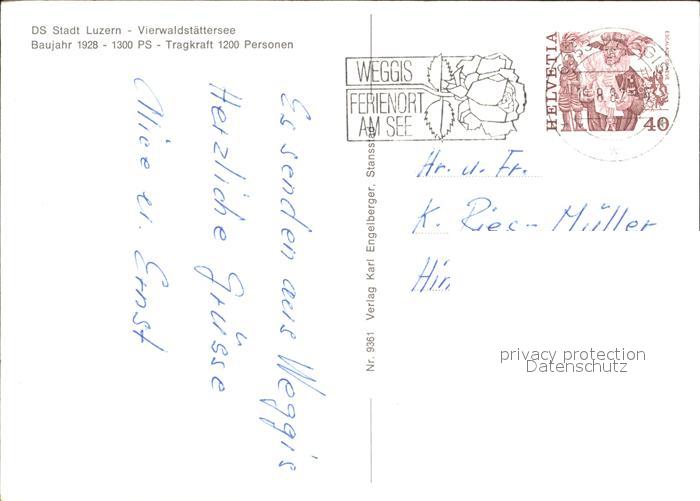 DS Stadt Luzern - Vierwaldstättersee
Baujahr 1928 - 1300 PS - Tragkraft 1200 Personen
WEGGIS
FERIENORT
AM SEE
HELVETIA
40
Es senden aus Weggis
Herzliche Grüsse
Alice u. Ernst
Nr. 9361 Verlag Karl Engelberger, Stansstad
Hr. u. Fr.
K. Riec-Müller
Hir.
privacy protection
Datenschutz